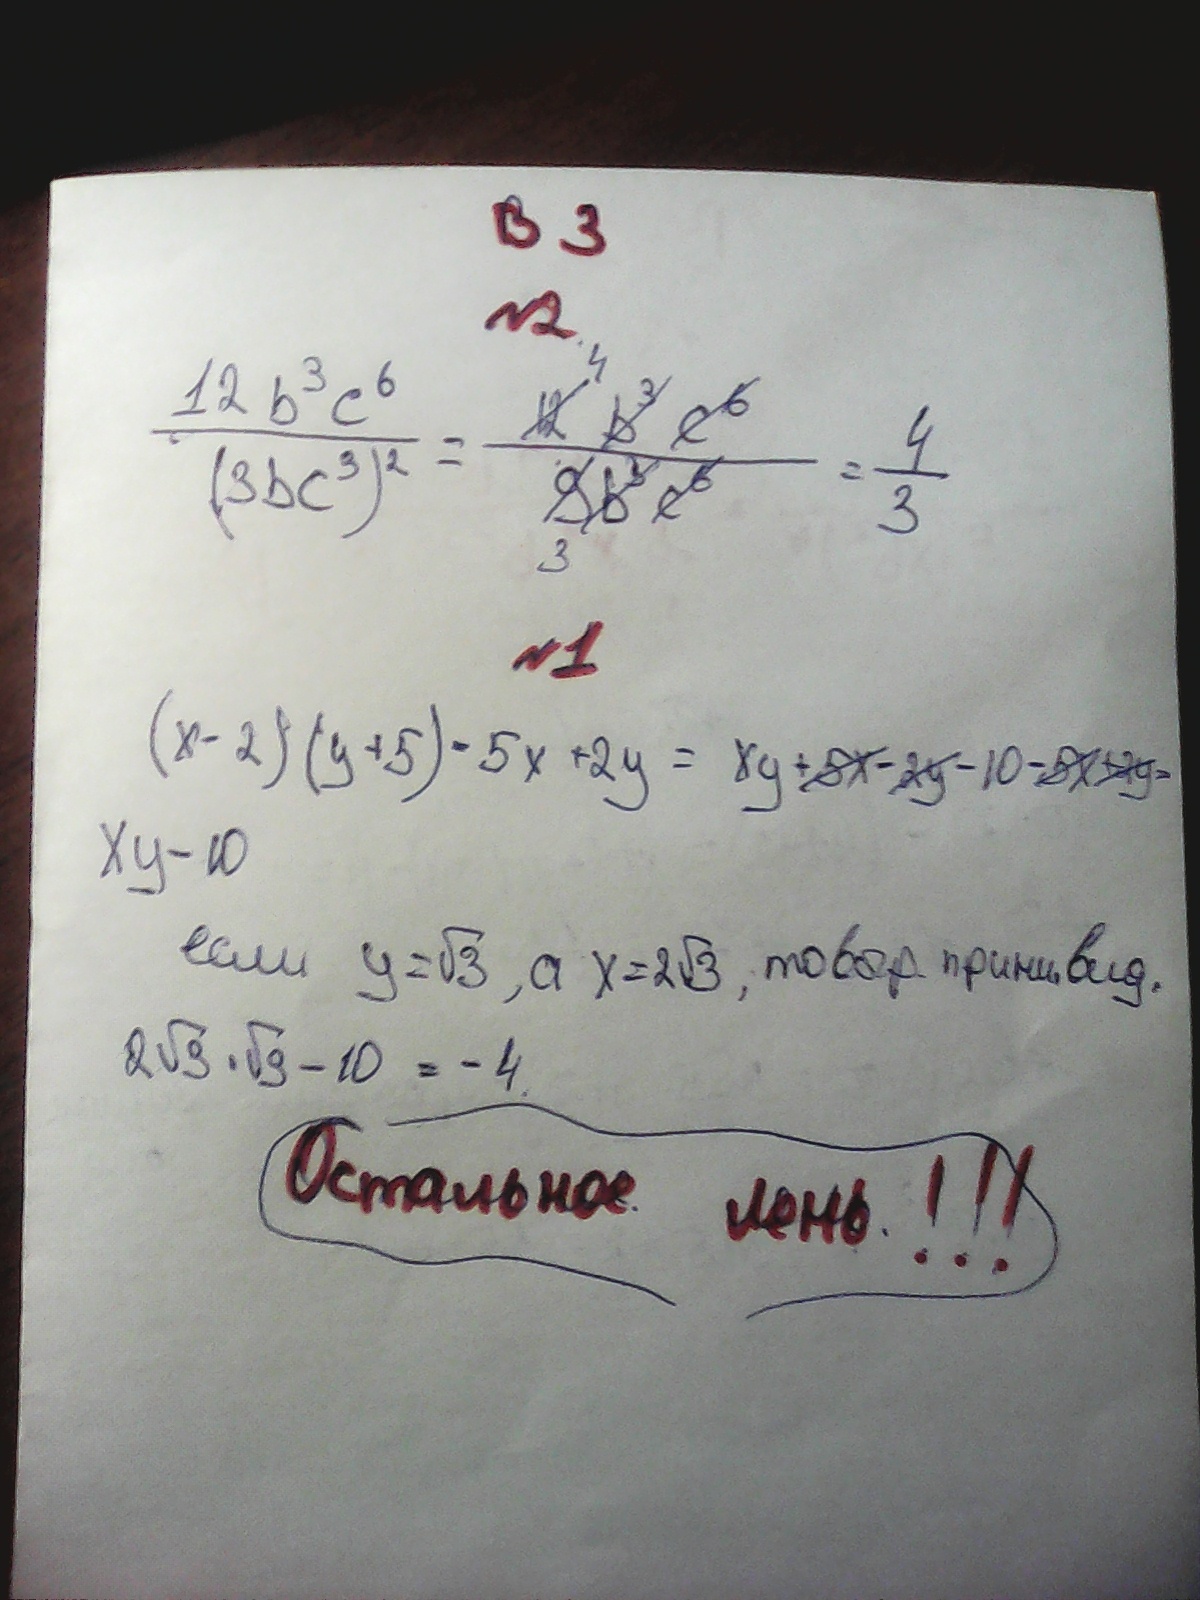 В 3
№2
12 b³c⁶ / (3bc³)² = 12 b³ c⁶ / 9b³c⁶ = 4/3
4
3
№1
(x-2)(y+5)-5x+2y = xy+5x-2y-10-5x+2y=
xy-10
если y=√3, а x=2√3, то выр. приним. вид.
2√3·√3-10 = -4
Остальное лень. !!!